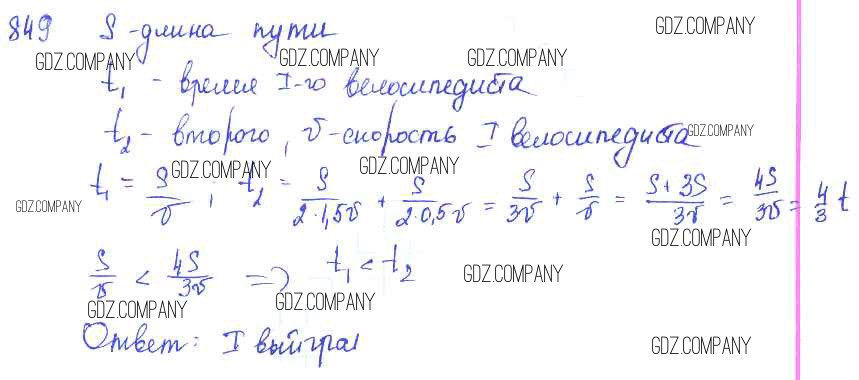 849 S - длина пути GDZ.COMPANY
GDZ.COMPANY GDZ.COMPANY GDZ.COMPANY
t₁ - время I-го велосипедиста
t₂ - второго, v - скорость I велосипедиста GDZ.COMPANY
GDZ.COMPANY GDZ.COMPANY
t₁ = S/v ; t₂ = S/(2·1,5v) + S/(2·0,5v) = S/3v + S/v = (S+3S)/3v = 4S/3v = 4/3 t
GDZ.COMPANY
GDZ.COMPANY
S/v < 4S/3v => t₁ < t₂
GDZ.COMPANY
GDZ.COMPANY GDZ.COMPANY
Ответ: I выиграл
GDZ.COMPANY